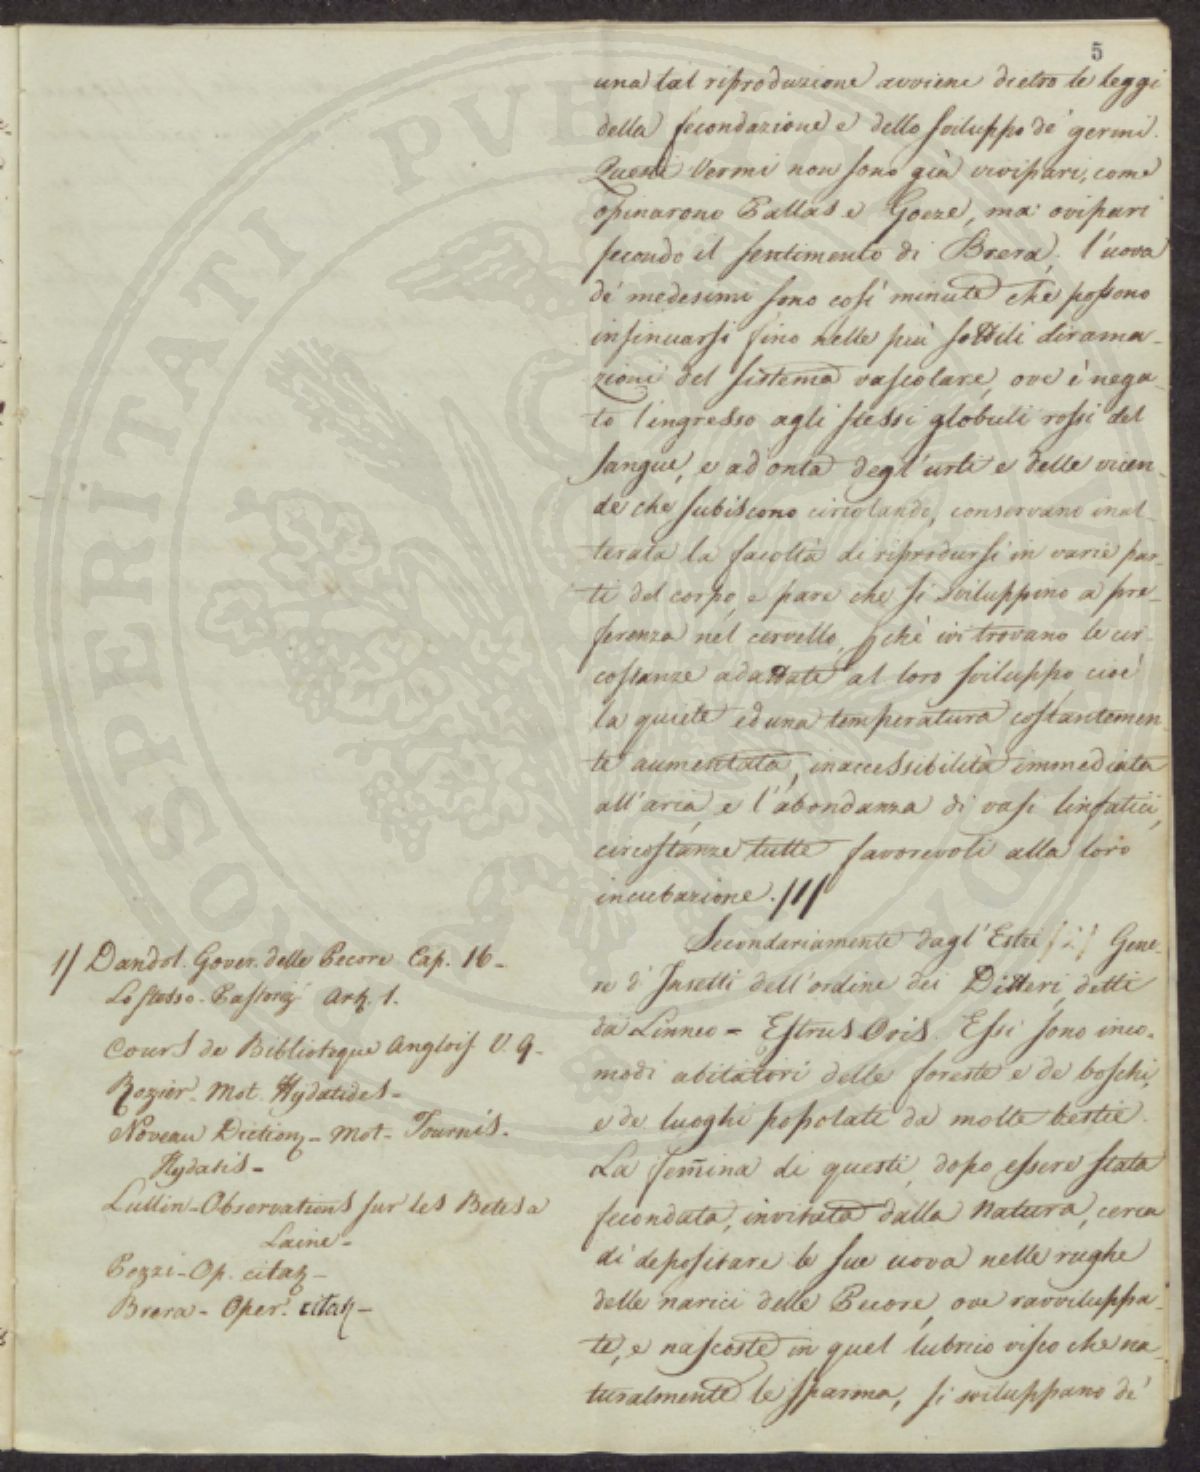 5
una tal riproduzione avviene dietro le leggi
della fecondazione e dello sviluppo de' germi.
Questi Vermi non sono già vivipari, come
opinarono Pallas e Goeze, ma ovipari
secondo il sentimento di Brera; l'uova
de' medesimi sono così minute che possono
insinuarsi fino nelle più sottili dirama-
zioni del sistema vascolare, ove è nega-
to l'ingresso agli stessi globuli rossi del
sangue, e ad onta degl'urti e delle vicen-
de che subiscono circolando, conservano inal-
terata la facoltà di riprodursi in varie par-
ti del corpo, e pare che si sviluppino a pre-
ferenza nel cervello, pchè ivi trovano le cir-
costanze adattate al loro sviluppo, cioè
la quiete ed una temperatura costantemen-
te aumentata, inaccessibilità immediata
all'aria, e l'abondanza di vasi linfatici,
circostanze tutte favorevoli alla loro
incubazione. /1/
Secondariamente dagl'Estri /2/ Gene-
re d'Insetti dell'ordine dei Ditteri, detti
da Linneo = Estrus Ovis. Essi sono inco-
modi abitatori delle foreste e de boschi,
e de luoghi popolati da molte bestie.
La femina di questi, dopo essere stata
fecondata, invitata dalla Natura, cerca
di depositare le sue uova nelle rughe
delle narici delle Pecore, ove ravviluppa-
te, e nascoste in quel lubrico visco che na-
turalmente le sparma, si sviluppano de'
1/ Dandol. Gover. delle Pecore Cap. 16-
Lo stesso. Pastorizi Art. 1.
Cours de Biblioteque Anglois V. 9-
Rozier. Mot. Hydatides-
Noveau Diction. - Mot- Tournis.
Hydatis-
Lullin-Observations sur les Betes a
Laine-
Pozzi-Op. citat-
Brera- Oper. citat-
SOSPERITATI PVBLICAE